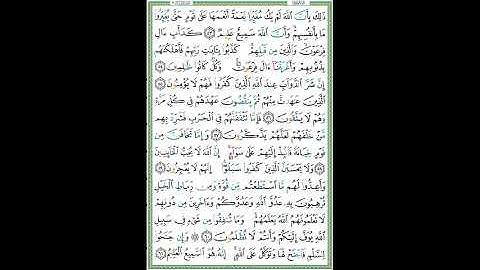 ذَٰلِكَ بِأَنَّ ٱللَّهَ لَمْ يَكُ مُغَيِّرًا نِّعْمَةً أَنْعَمَهَا عَلَىٰ قَوْمٍ حَتَّىٰ يُغَيِّرُوا۟
مَا بِأَنفُسِهِمْ وَأَنَّ ٱللَّهَ سَمِيعٌ عَلِيمٌ ٥٣ كَدَأْبِ ءَالِ
فِرْعَوْنَ وَٱلَّذِينَ مِن قَبْلِهِمْ كَذَّبُوا۟ بِـَٔايَـٰتِ رَبِّهِمْ فَأَهْلَكْنَـٰهُم
بِذُنُوبِهِمْ وَأَغْرَقْنَآ ءَالَ فِرْعَوْنَ وَكُلٌّ كَانُوا۟ ظَـٰلِمِينَ ٥٤
إِنَّ شَرَّ ٱلدَّوَآبِّ عِندَ ٱللَّهِ ٱلَّذِينَ كَفَرُوا۟ فَهُمْ لَا يُؤْمِنُونَ ٥٥
ٱلَّذِينَ عَـٰهَدتَّ مِنْهُمْ ثُمَّ يَنقُضُونَ عَهْدَهُمْ فِى كُلِّ مَرَّةٍ
وَهُمْ لَا يَتَّقُونَ ٥٦ فَإِمَّا تَثْقَفَنَّهُمْ فِى ٱلْحَرْبِ فَشَرِّدْ بِهِم
مَّنْ خَلْفَهُمْ لَعَلَّهُمْ يَذَّكَّرُونَ ٥٧ وَإِمَّا تَخَافَنَّ مِن
قَوْمٍ خِيَانَةً فَٱنۢبِذْ إِلَيْهِمْ عَلَىٰ سَوَآءٍ إِنَّ ٱللَّهَ لَا يُحِبُّ ٱلْخَآئِنِينَ
٥٨ وَلَا يَحْسَبَنَّ ٱلَّذِينَ كَفَرُوا۟ سَبَقُوٓا۟ إِنَّهُمْ لَا يُعْجِزُونَ ٥٩
وَأَعِدُّوا۟ لَهُم مَّا ٱسْتَطَعْتُم مِّن قُوَّةٍ وَمِن رِّبَاطِ ٱلْخَيْلِ
تُرْهِبُونَ بِهِۦ عَدُوَّ ٱللَّهِ وَعَدُوَّكُمْ وَءَاخَرِينَ مِن دُونِهِمْ
لَا تَعْلَمُونَهُمُ ٱللَّهُ يَعْلَمُهُمْ وَمَا تُنفِقُوا۟ مِن شَىْءٍ فِى سَبِيلِ
ٱللَّهِ يُوَفَّ إِلَيْكُمْ وَأَنتُمْ لَا تُظْلَمُونَ ٦٠ وَإِن جَنَحُوا۟
لِلسَّلْمِ فَٱجْنَحْ لَهَا وَتَوَكَّلْ عَلَى ٱللَّهِ إِنَّهُۥ هُوَ ٱلسَّمِيعُ ٱلْعَلِيمُ ٦١